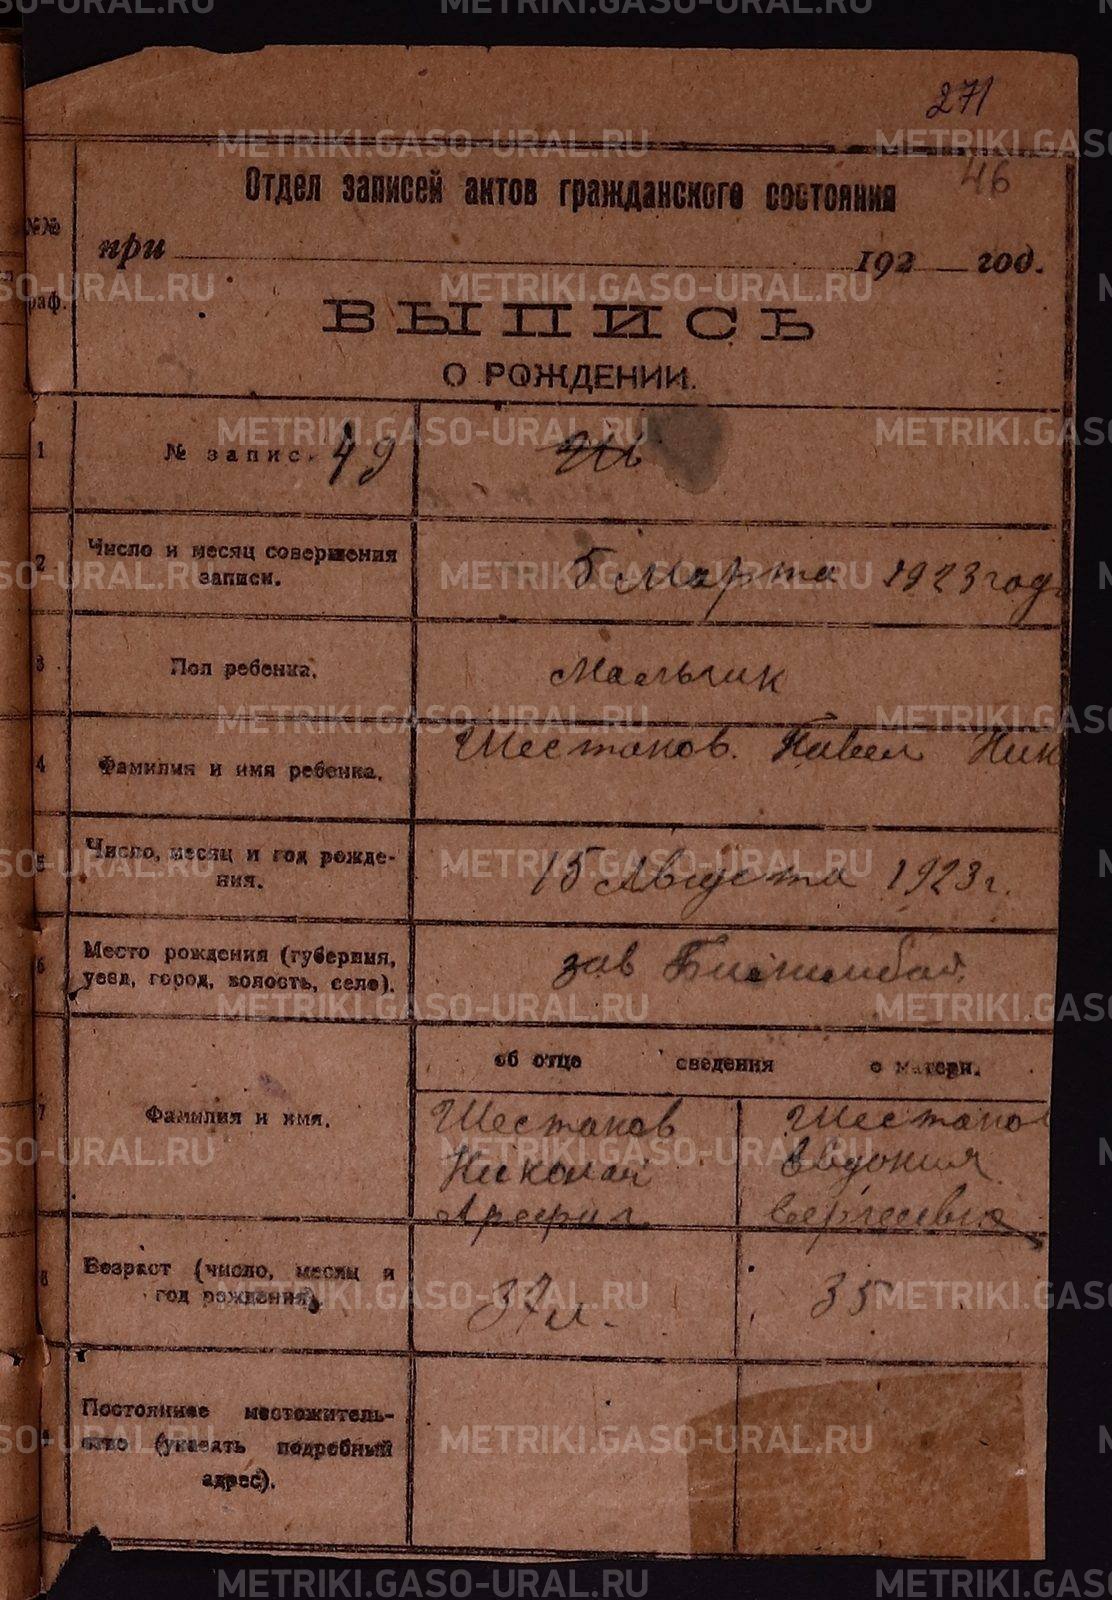 271
46
Отдел записей актов гражданского состояния
№№
раф.
при 192 год.
ВЫПИСЬ
О РОЖДЕНИИ.
1 № запис. 49
2 Число и месяц совершения
записи.
5 Марта 1923 год
3 Пол ребенка. Мальчик
4 Фамилия и имя ребенка. Шестаков. Павел Ник
5 Число, месяц и год рожде-
ния.
15 Августа 1923 г.
6 Место рождения (губерния,
уезд, город, волость, село).
зав Билимбай
об отце сведения о матери.
7 Фамилия и имя.
Шестаков
Николай
Шестако
Евдокия
Сергеевна
8 Возраст (число, месяц и
год рождения).
37 л. 35
Постоянное местожитель-
ство (указать подробный
адрес).
METRIKI.GASO-URAL.RU